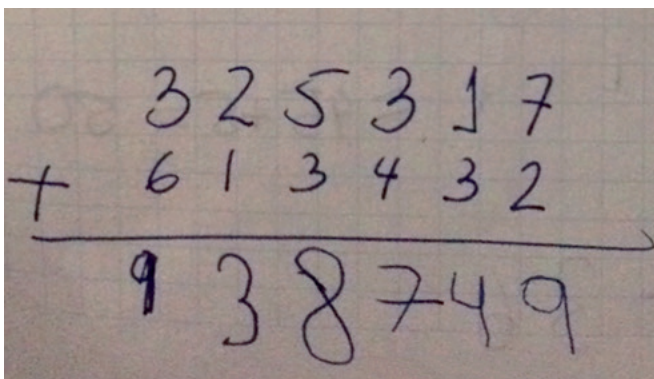 3 2 5 3 1 7
+ 6 1 3 4 3 2
9 3 8 7 4 9